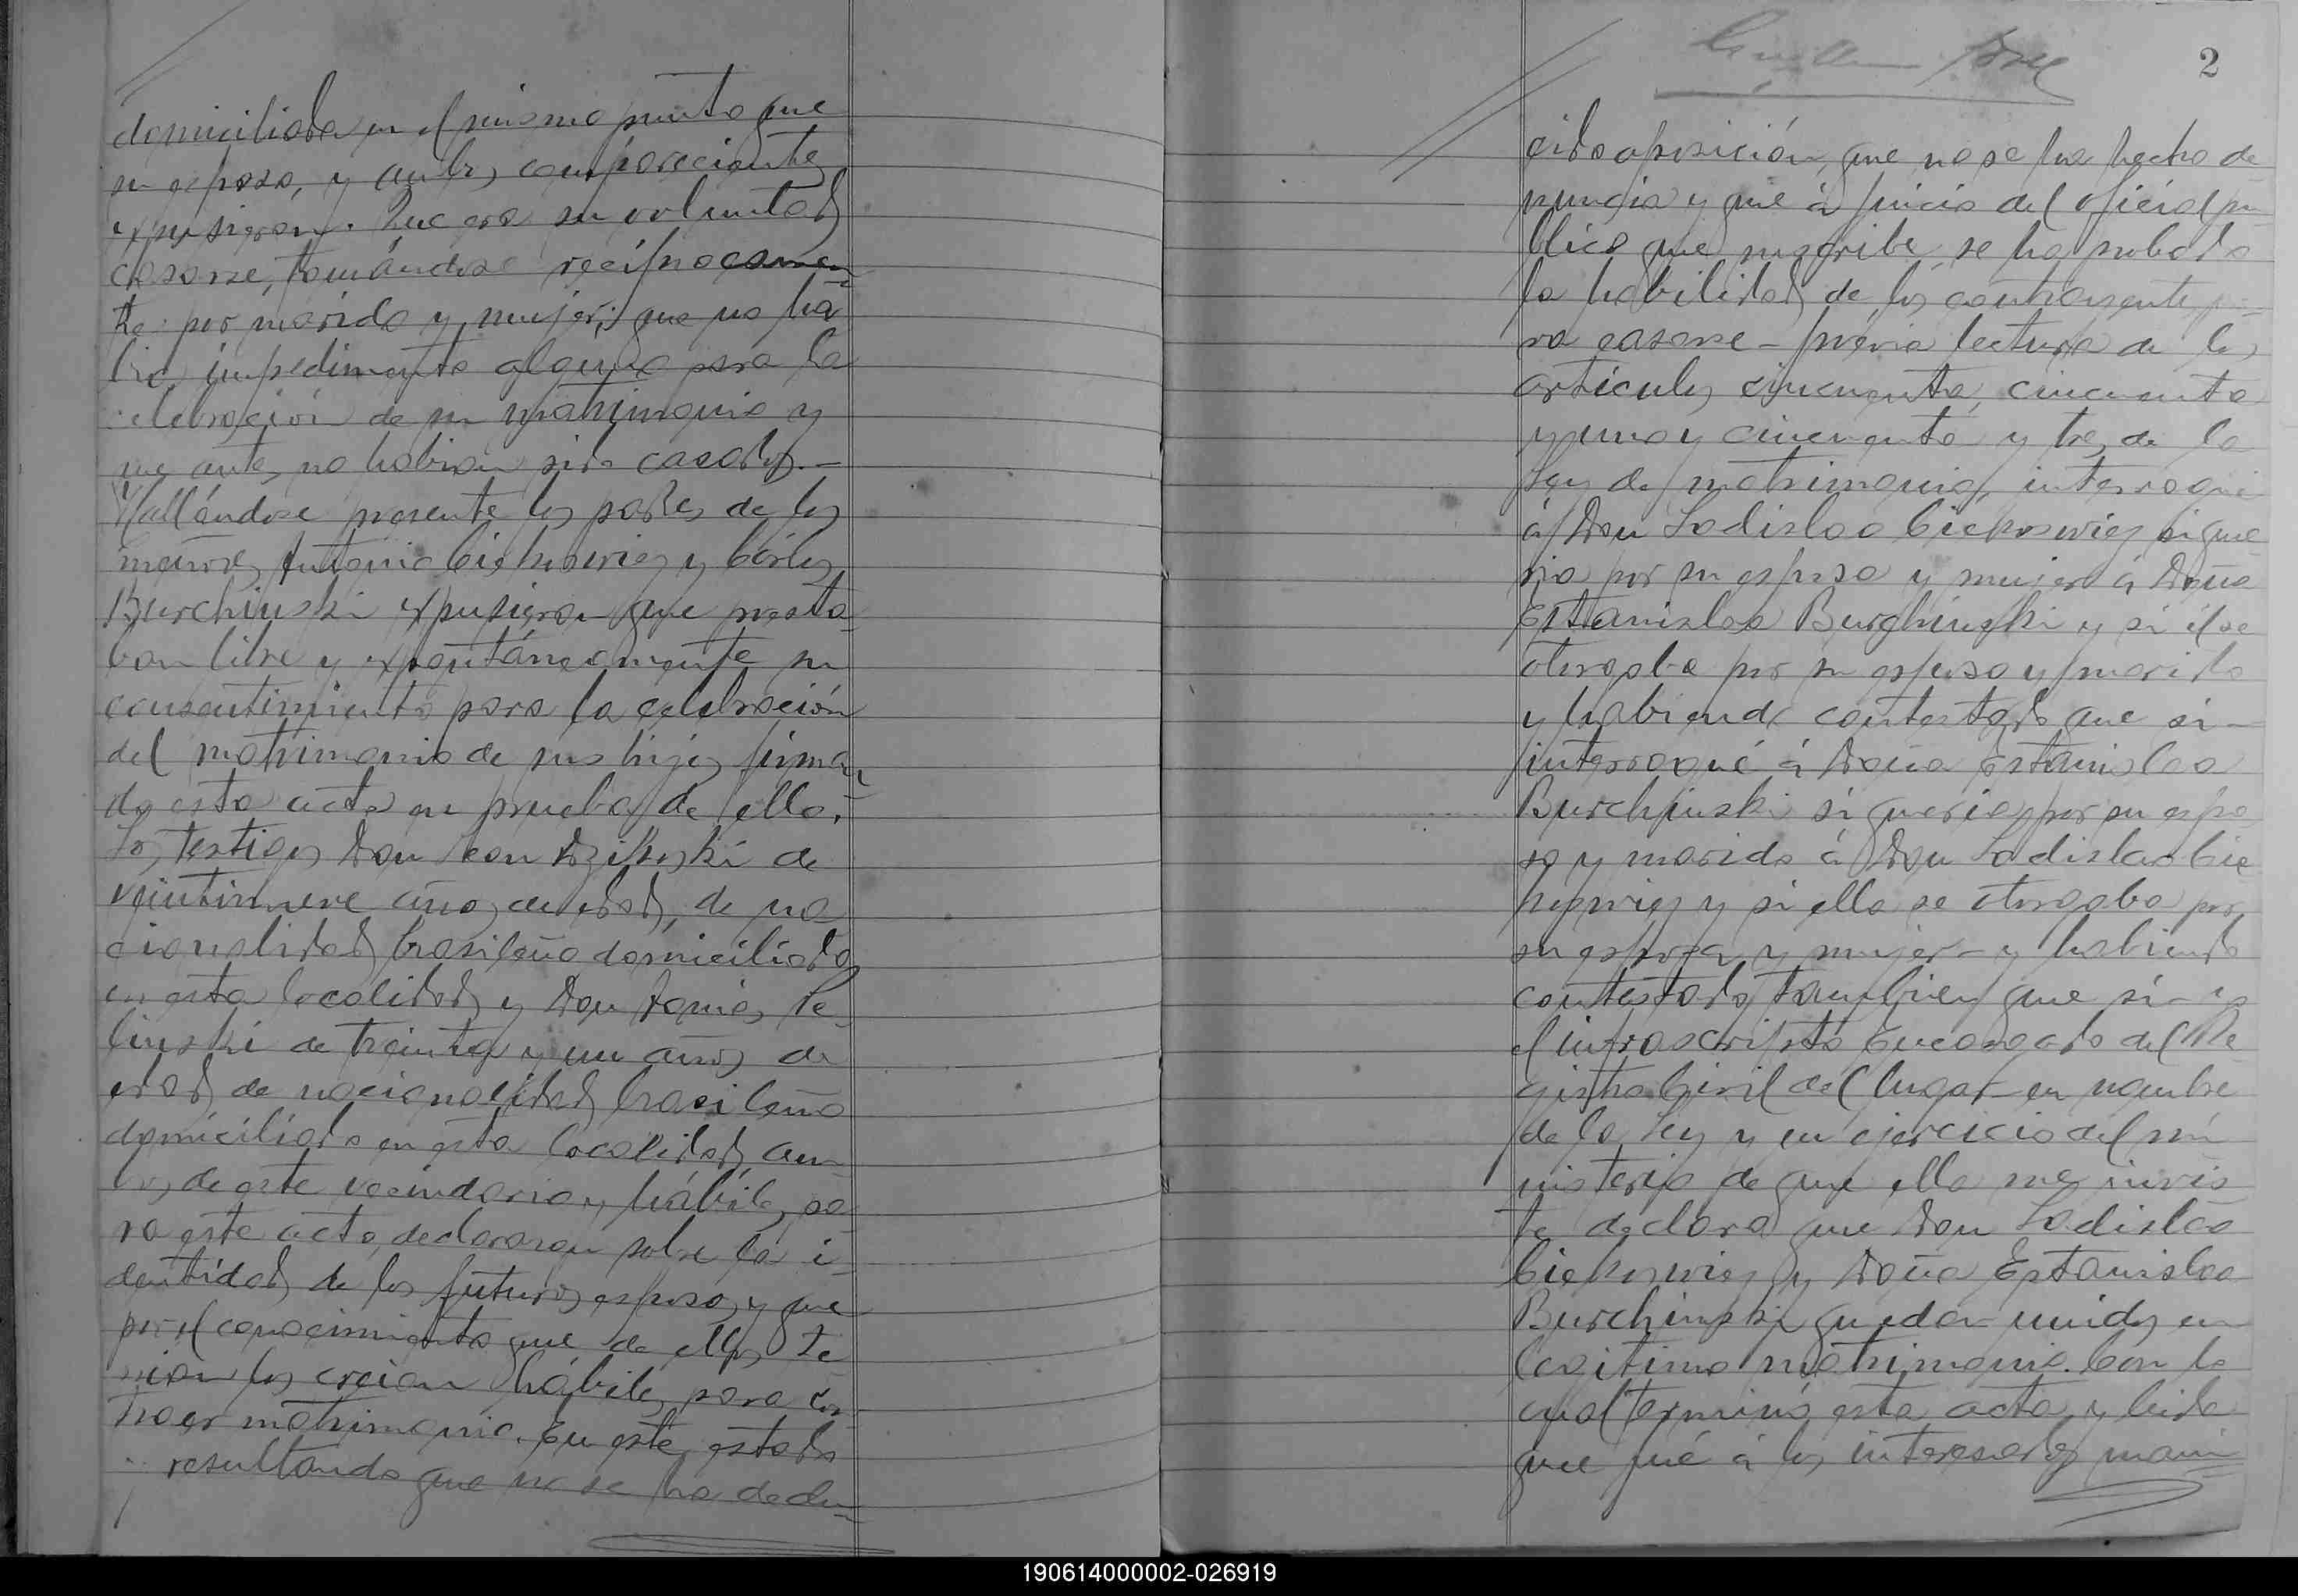 domiciliada en el mismo punto que
su esposo, y ambos comparecientes
expusieron: Que era su voluntad
casarse, tomándose recíprocamen-
te por marido y mujer; que no ha-
bía impedimento alguno para la
celebración de su matrimonio y
que antes no habían sido casados.—
Hallándose presente los padres de los
menores, Antonio Ciekoswiez y Cárlos
Burchinski expusieron que presta-
ban libre y expontáneamente su
consentimiento para la celebración
del matrimonio de sus hijos firman-
do esta acta en prueba de ello.—
Los testigos Don Leon de
veintinueve años de edad, de na-
cionalidad brasileña domiciliado
en esta localidad y Don Pe-
linski de treinta y un años de
edad de nacionalidad brasileña
domiciliado en esta localidad, am-
bos de este vecindario y hábiles pa-
ra este acto, declararon sobre la i-
dentidad de los futuros esposos y que
por el conocimiento que de ellos te-
nían los creían hábiles para con-
traer matrimonio. En este estado
resultando que no se ha dedu-
2
cido oposición, que no se ha hecho de-
nuncia y que á juicio del oficial pú-
blico que suscribe, se ha probado
la habilidad de los contrayentes pa-
ra casarse – prévia lectura de los
artículos cincuenta, cincuenta
y uno y cincuenta y tres de la
Ley de matrimonio, interrogué
á Don Ladislao Ciekoswiez si que-
ría por su esposa y mujer á Doña
Estanislaa Burchinski y si él se
otorgaba por su esposo y marido
y habiendo contestado que sí –
interrogué á Doña Estanislaa
Burchinski si quería por su espo-
so y marido á Don Ladislao Cie-
koswiez y si ella se otorgaba por
su esposa y mujer – y habiendo
contestado tambien que sí – yo
el infrascripto Encargado del Re-
gistro Civil del lugar – en nombre
de la Ley y en ejercicio del mi-
nisterio de que ella me invis-
te declaro que Don Ladislao
Ciekoswiez y Doña Estanislaa
Burchinski quedan unidos en
legítimo matrimonio. Con lo
cual terminó esta acta y leida
que fué á los interesados mani-
190614000002-026919